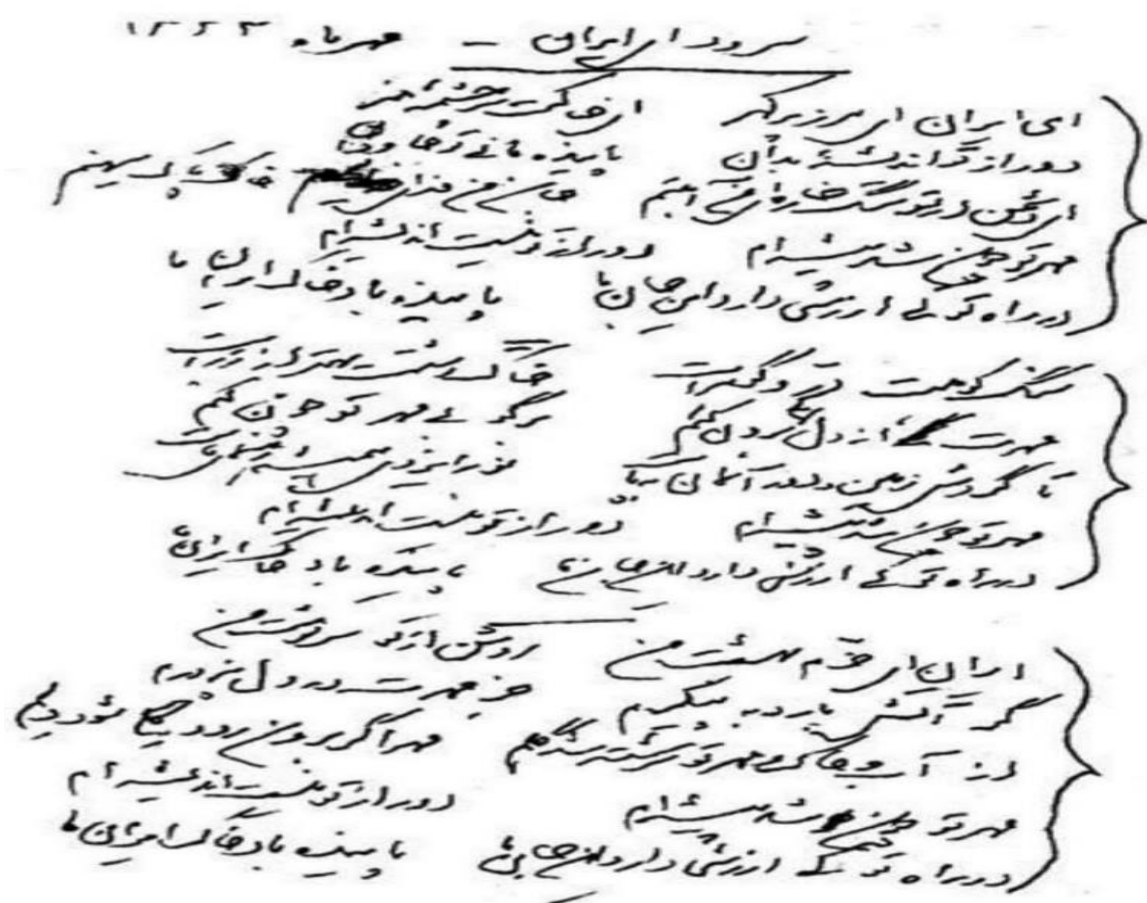 سرود ای ایران – مهرماه ۱۳۲۳
ای ایران ای مرز پرگهر ای خاکت سرچشمه هنر
دور از تو اندیشهٔ بدان پاینده مانی تو جاودان
ای دشمن ار تو سنگ خاره‌ای من آهنم جان من فدای خاک پاک میهنم
مهر تو چون شد پیشه‌ام دور از تو نیست اندیشه‌ام
در راه تو کی ارزشی دارد این جان ما پاینده باد خاک ایران ما
سنگ کوهت در و گوهر است خاک دشتت بهتر از زر است
مهرت از دل کی برون کنم برگو بی مهر تو چون کنم
تا گردش زمین و دور آسمان بپاست نور ایزدی همیشه رهنمای ماست
مهر تو چون شد پیشه‌ام دور از تو نیست اندیشه‌ام
در راه تو کی ارزشی دارد این جان ما پاینده باد خاک ایران ما
ایران ای خرم بهشت من روشن از تو سرنوشت من
گر آتش بارد به پیکرم جز مهرت در دل نپرورم
از آب و خاک و مهر تو سرشته شد گلم مهر اگر برون رود تهی شود دلم
مهر تو چون شد پیشه‌ام دور از تو نیست اندیشه‌ام
در راه تو کی ارزشی دارد این جان ما پاینده باد خاک ایران ما